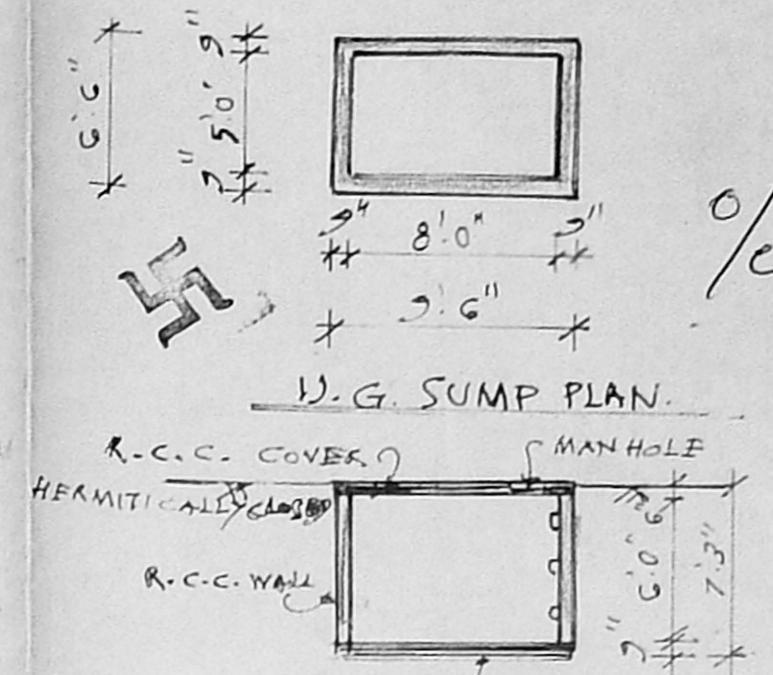 6'.6"
9"
5'.0'
9"
9"
8'.0"
9"
9'.6"
U.G. SUMP PLAN.
R.C.C. COVER
MANHOLE
HERMITICALLY CLOSED
R.C.C. WALL
6"
6'.0"
7'.3"
9"